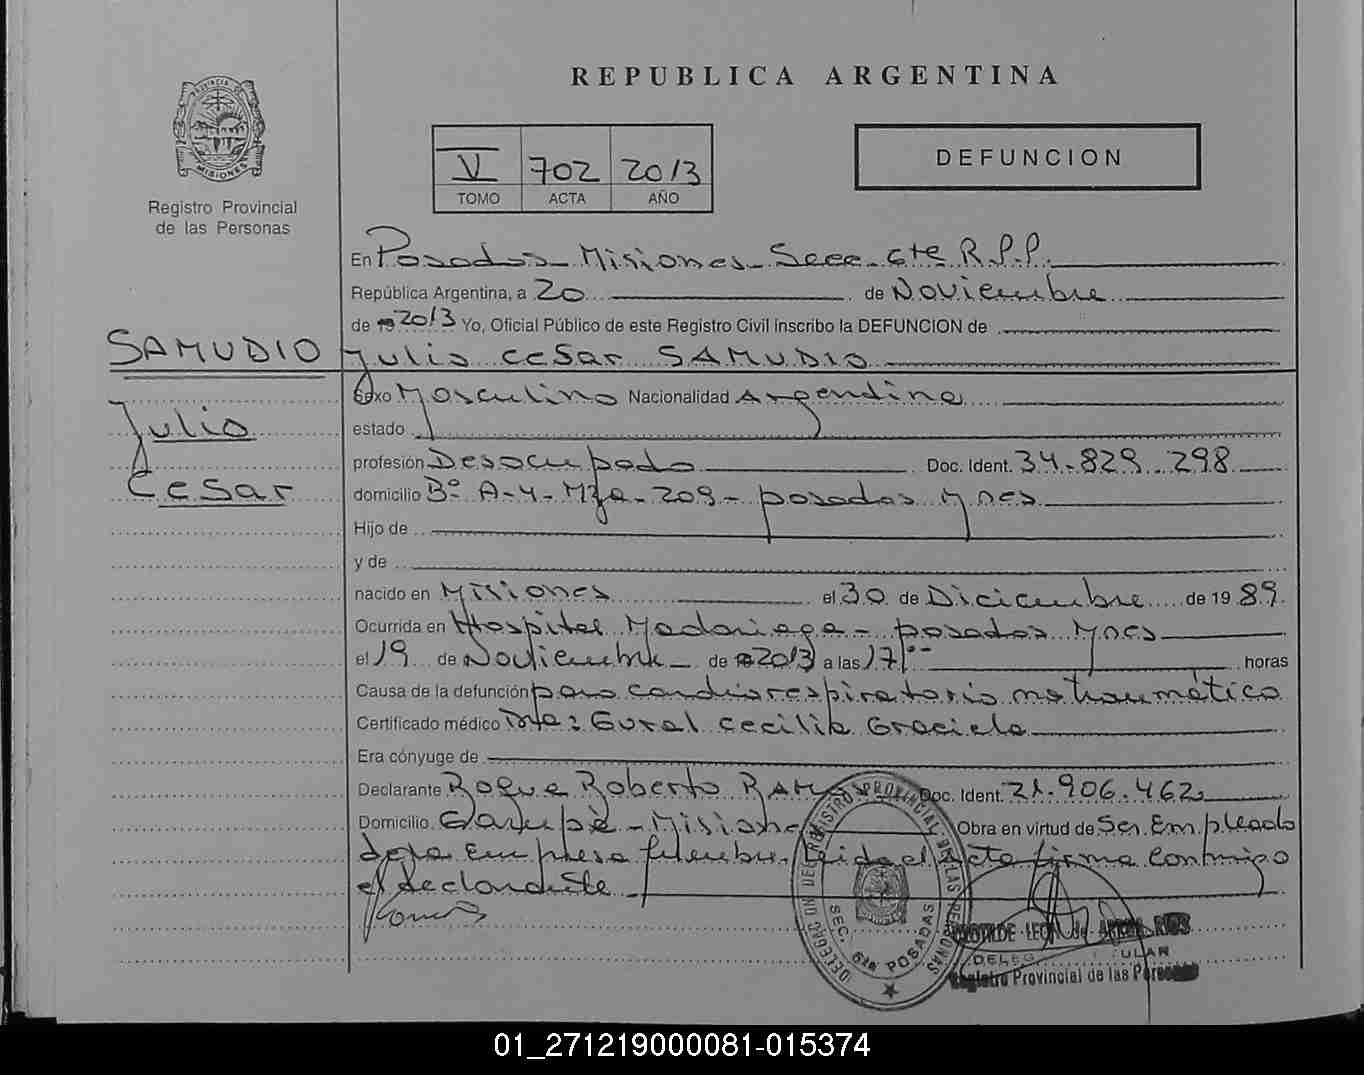 REPUBLICA ARGENTINA
PROVINCIA DE
MISIONES
Registro Provincial
de las Personas
V 702 2013
TOMO ACTA AÑO
DEFUNCION
En Posadas Misiones Secc 6ta R.P.P.
República Argentina, a 20 de Noviembre
de 2013 Yo, Oficial Público de este Registro Civil inscribo la DEFUNCION de
SAMUDIO
Julio
Cesar
Julio Cesar SAMUDIO
Sexo Masculino Nacionalidad Argentina
estado
profesión Desocupado Doc. Ident. 34.829.298
domicilio Bº A-4-Mza-209- posadas Mnes
Hijo de
y de
nacido en Misiones el 30 de Diciembre de 1989
Ocurrida en Hospital Madariaga - posadas Mnes
el 19 de Noviembre de 2013 a las 17 horas
Causa de la defunción paro cardiorespiratorio no traumático
Certificado médico Dra: Gural Cecilia Graciela
Era cónyuge de
Declarante Roque Roberto Doc. Ident. 21.906.462
Domicilio Garupá - Misiones Obra en virtud de Ser Empleado
de la Empresa fúnebre. Leida el Acta firma Conmigo
el declarante
DELEGACION DEL REGISTRO PROVINCIAL DE LAS PERSONAS
SEC. 6ta POSADAS
LEON de
Registro Provincial de las Personas
01_271219000081-015374